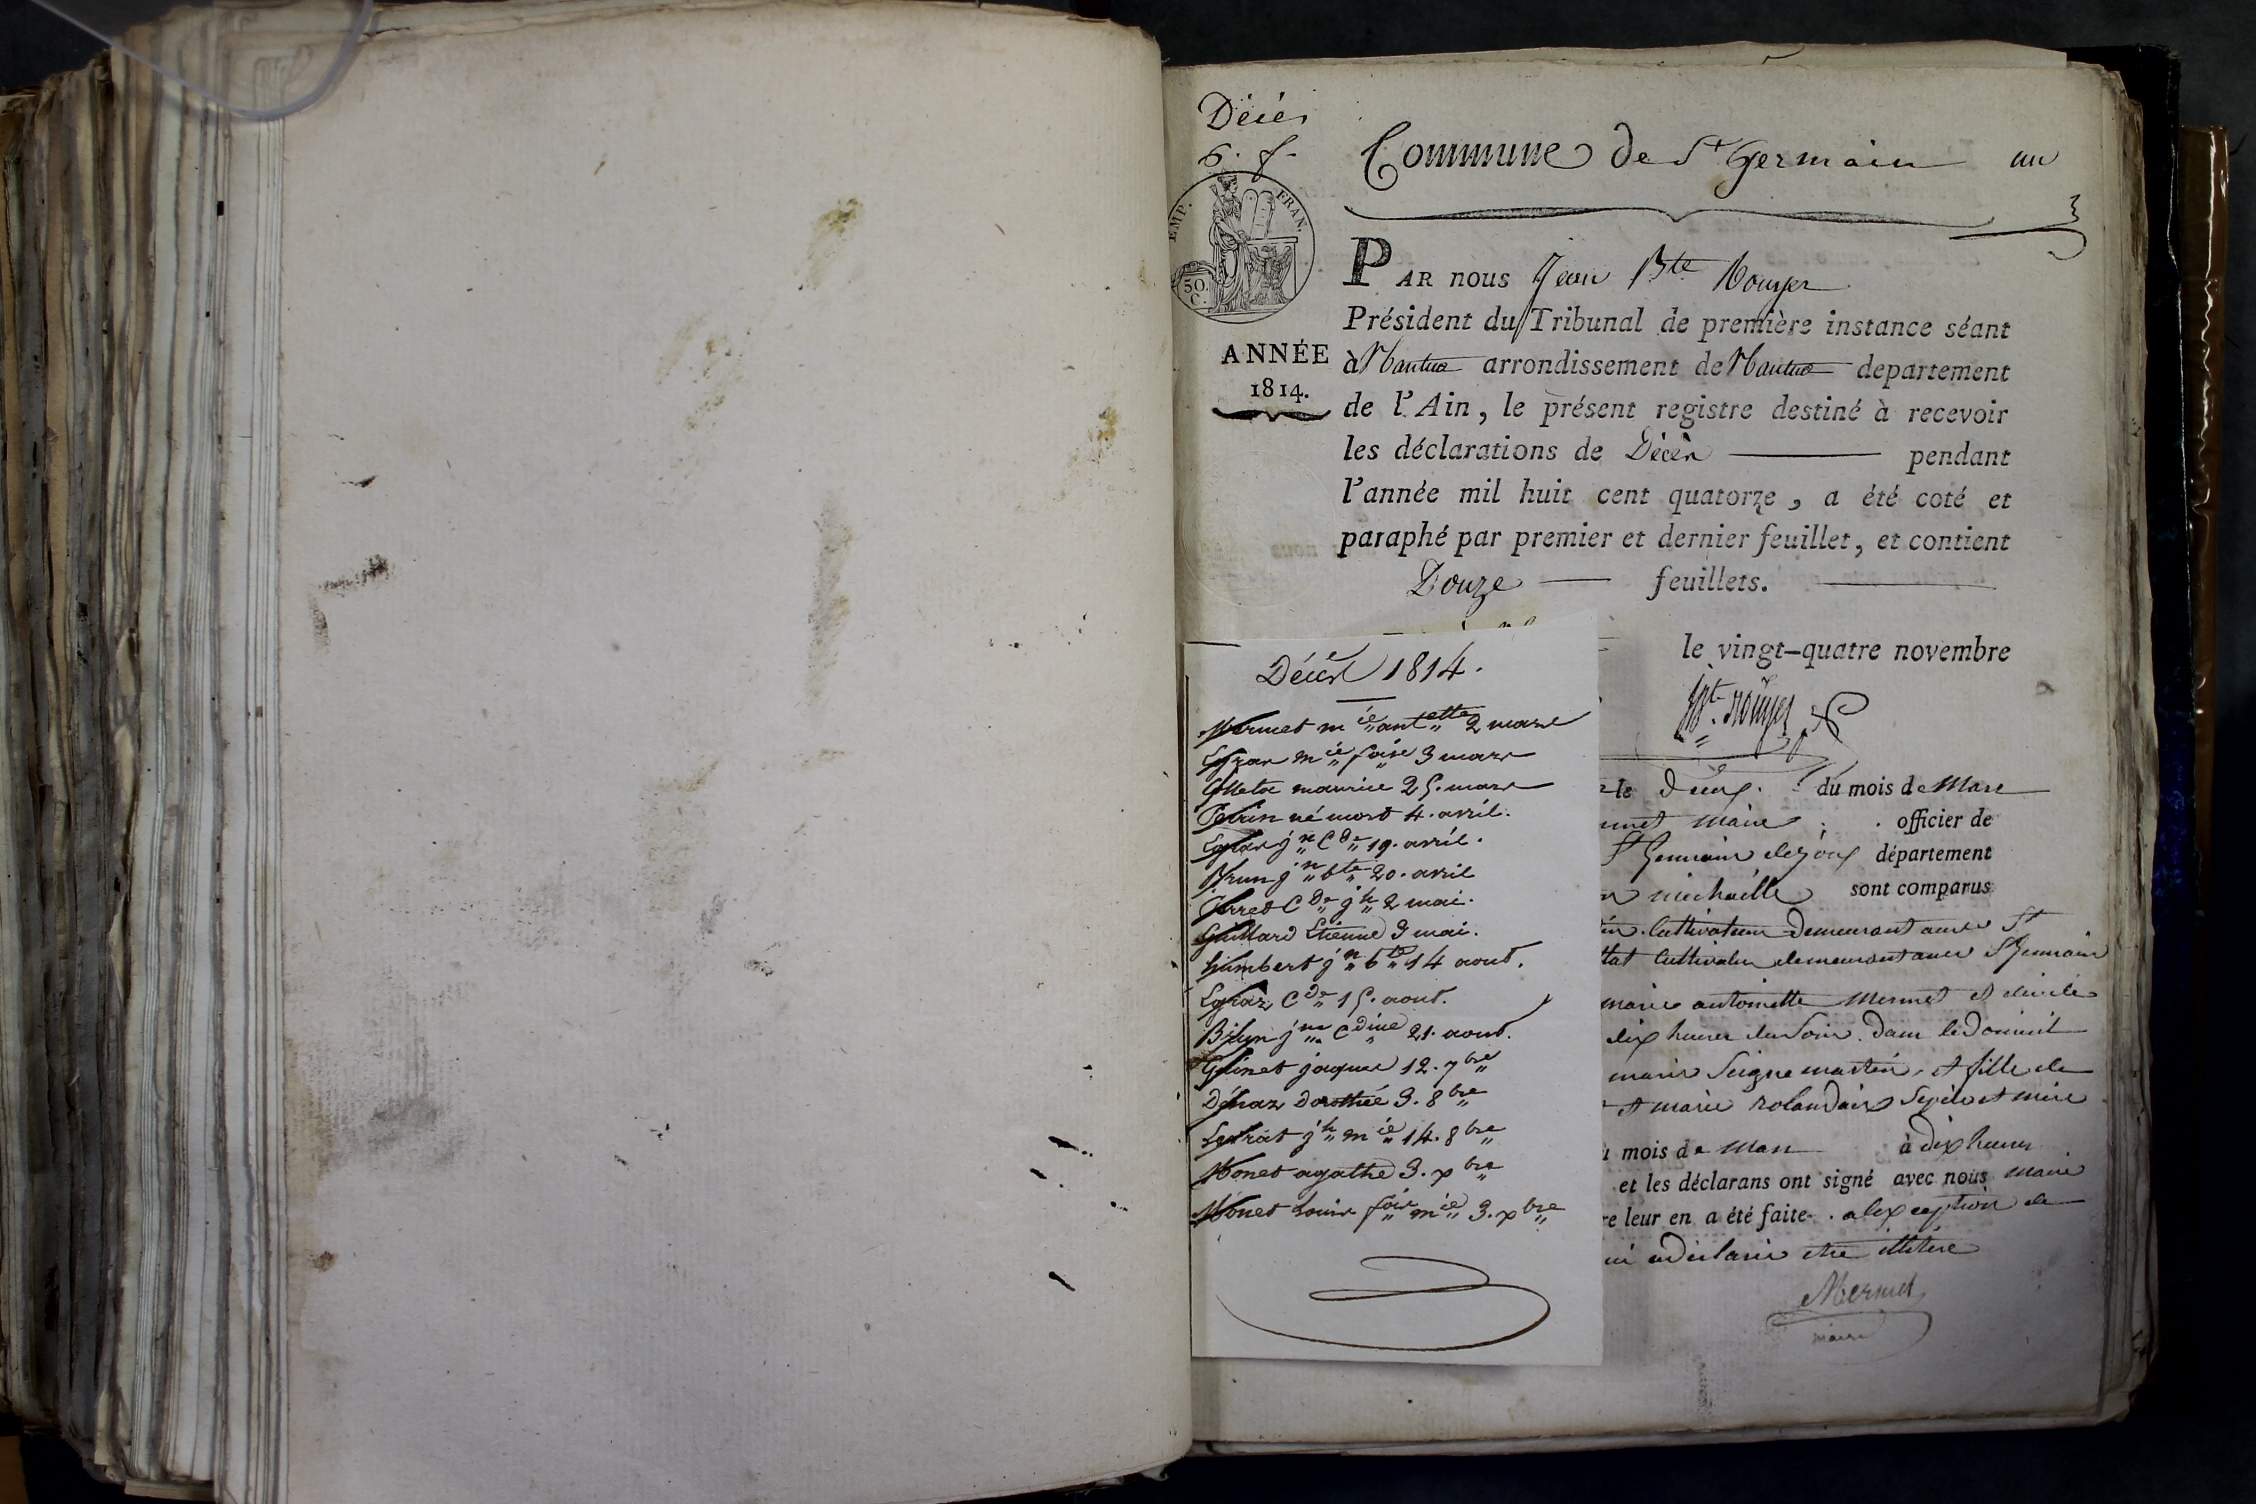 Décès
6. f.
Commune de St Germain un
EMP. FRAN.
50.
C.
ANNÉE
1814.
PAR nous Jean Bte Rouyer
Président du Tribunal de première instance séant
à Nantua arrondissement de Nantua departement
de l'Ain, le présent registre destiné à recevoir
les déclarations de Décès pendant
l'année mil huit cent quatorze, a été coté et
paraphé par premier et dernier feuillet, et contient
Douze feuillets.
le vingt-quatre novembre
Bte. Rouyer
Décès 1814.
Mermet mie antette 2 mars
mie foise 3 mars
maurice 25. mars
né mort 4. avril.
jn Cde 19. avril.
Brun jn bte 20. avril
Cde jh 2 mai.
Guillard Etienne 3 mai.
humbert jn bte 14 aout.
Cde 15. aout.
jne Cdine 21. aout.
jaques 12. 7bre
Dorothée 3. 8bre
jh mie 14. 8bre
Monet agathe 3. xbre
Monet Louise foise mie 3. xbre
le deux du mois de Mars
maire officier de
St Germain de Joux département
michaille sont comparus
Cultivateur demeurant audit St
Cultivateur demeurant audit St Germain
marie antoinette Mermet est décédée
dix heures du soir dans le domicile
martin, et fille de
et marie Ses père et mère
mois de Mars à dix heures
et les déclarans ont signé avec nous maire
re leur en a été faite. a lexception de
a déclaré etre
Mermet
maire